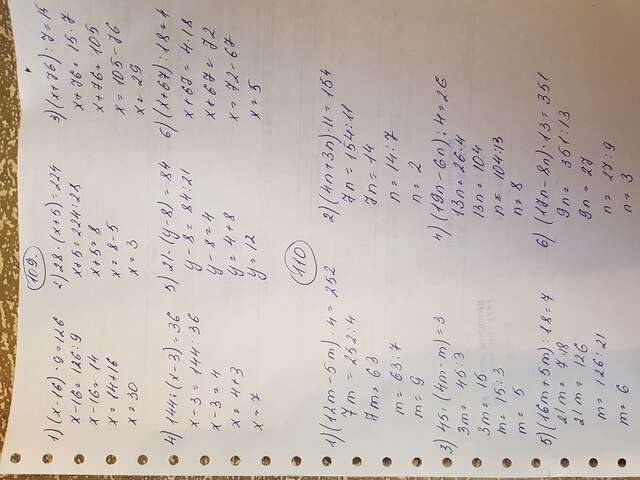 109.
1) (x-16) · 9 = 126
x-16 = 126 : 9
x-16 = 14
x = 14+16
x = 30
2) 28 · (x+5) = 224
x+5 = 224 : 28
x+5 = 8
x = 8-5
x = 3
3) (x+76) : 7 = 15
x+76 = 15 · 7
x+76 = 105
x = 105-76
x = 29
4) 144 : (x-3) = 36
x-3 = 144 : 36
x-3 = 4
x = 4+3
x = 7
5) 21 · (y-8) = 84
y-8 = 84 : 21
y-8 = 4
y = 4+8
y = 12
6) (x+67) : 18 = 4
x+67 = 4 · 18
x+67 = 72
x = 72-67
x = 5
110
1) (12m-5m) · 4 = 252
7m = 252 : 4
7m = 63
m = 63 : 7
m = 9
2) (4n+3n) · 11 = 154
7n = 154 : 11
7n = 14
n = 14 : 7
n = 2
3) 45 : (4m-m) = 3
3m = 45 : 3
3m = 15
m = 15 : 3
m = 5
4) (19n-6n) : 4 = 26
13n = 26 · 4
13n = 104
n = 104 : 13
n = 8
5) (16m+5m) : 18 = 7
21m = 7 · 18
21m = 126
m = 126 : 21
m = 6
6) (17n-8n) · 13 = 351
9n = 351 : 13
9n = 27
n = 27 : 9
n = 3